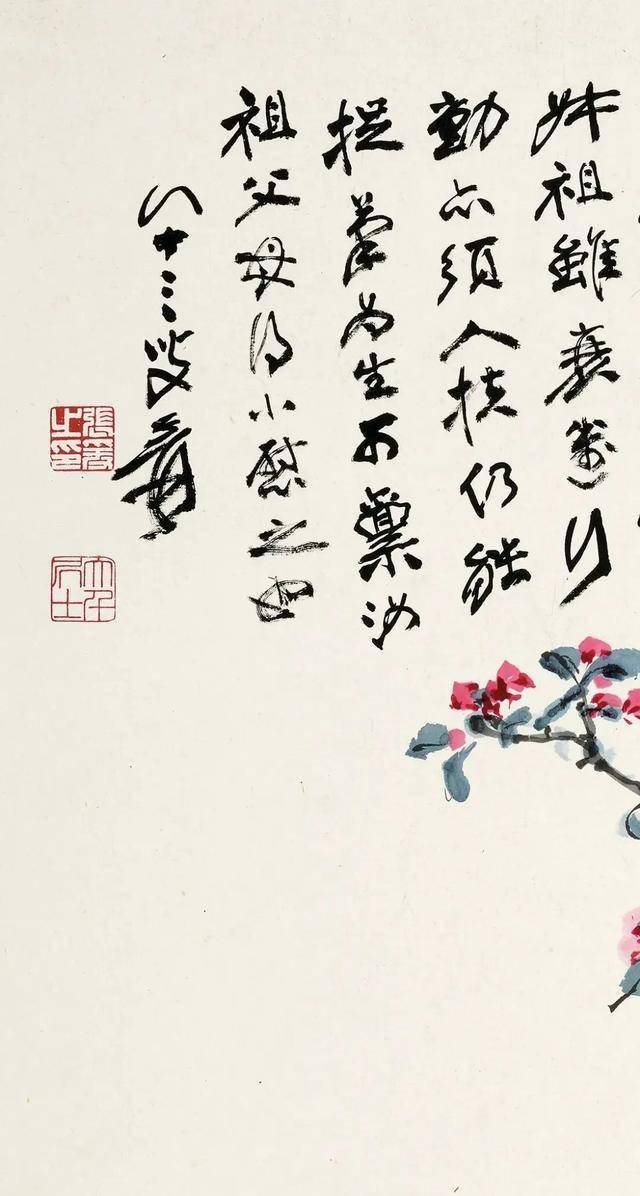 祖雖衰邁行
動亦須人扶仍能
捉筆為生可稟汝
祖父母得小慰之也
八十三叟爰
張爰之印
大千居士